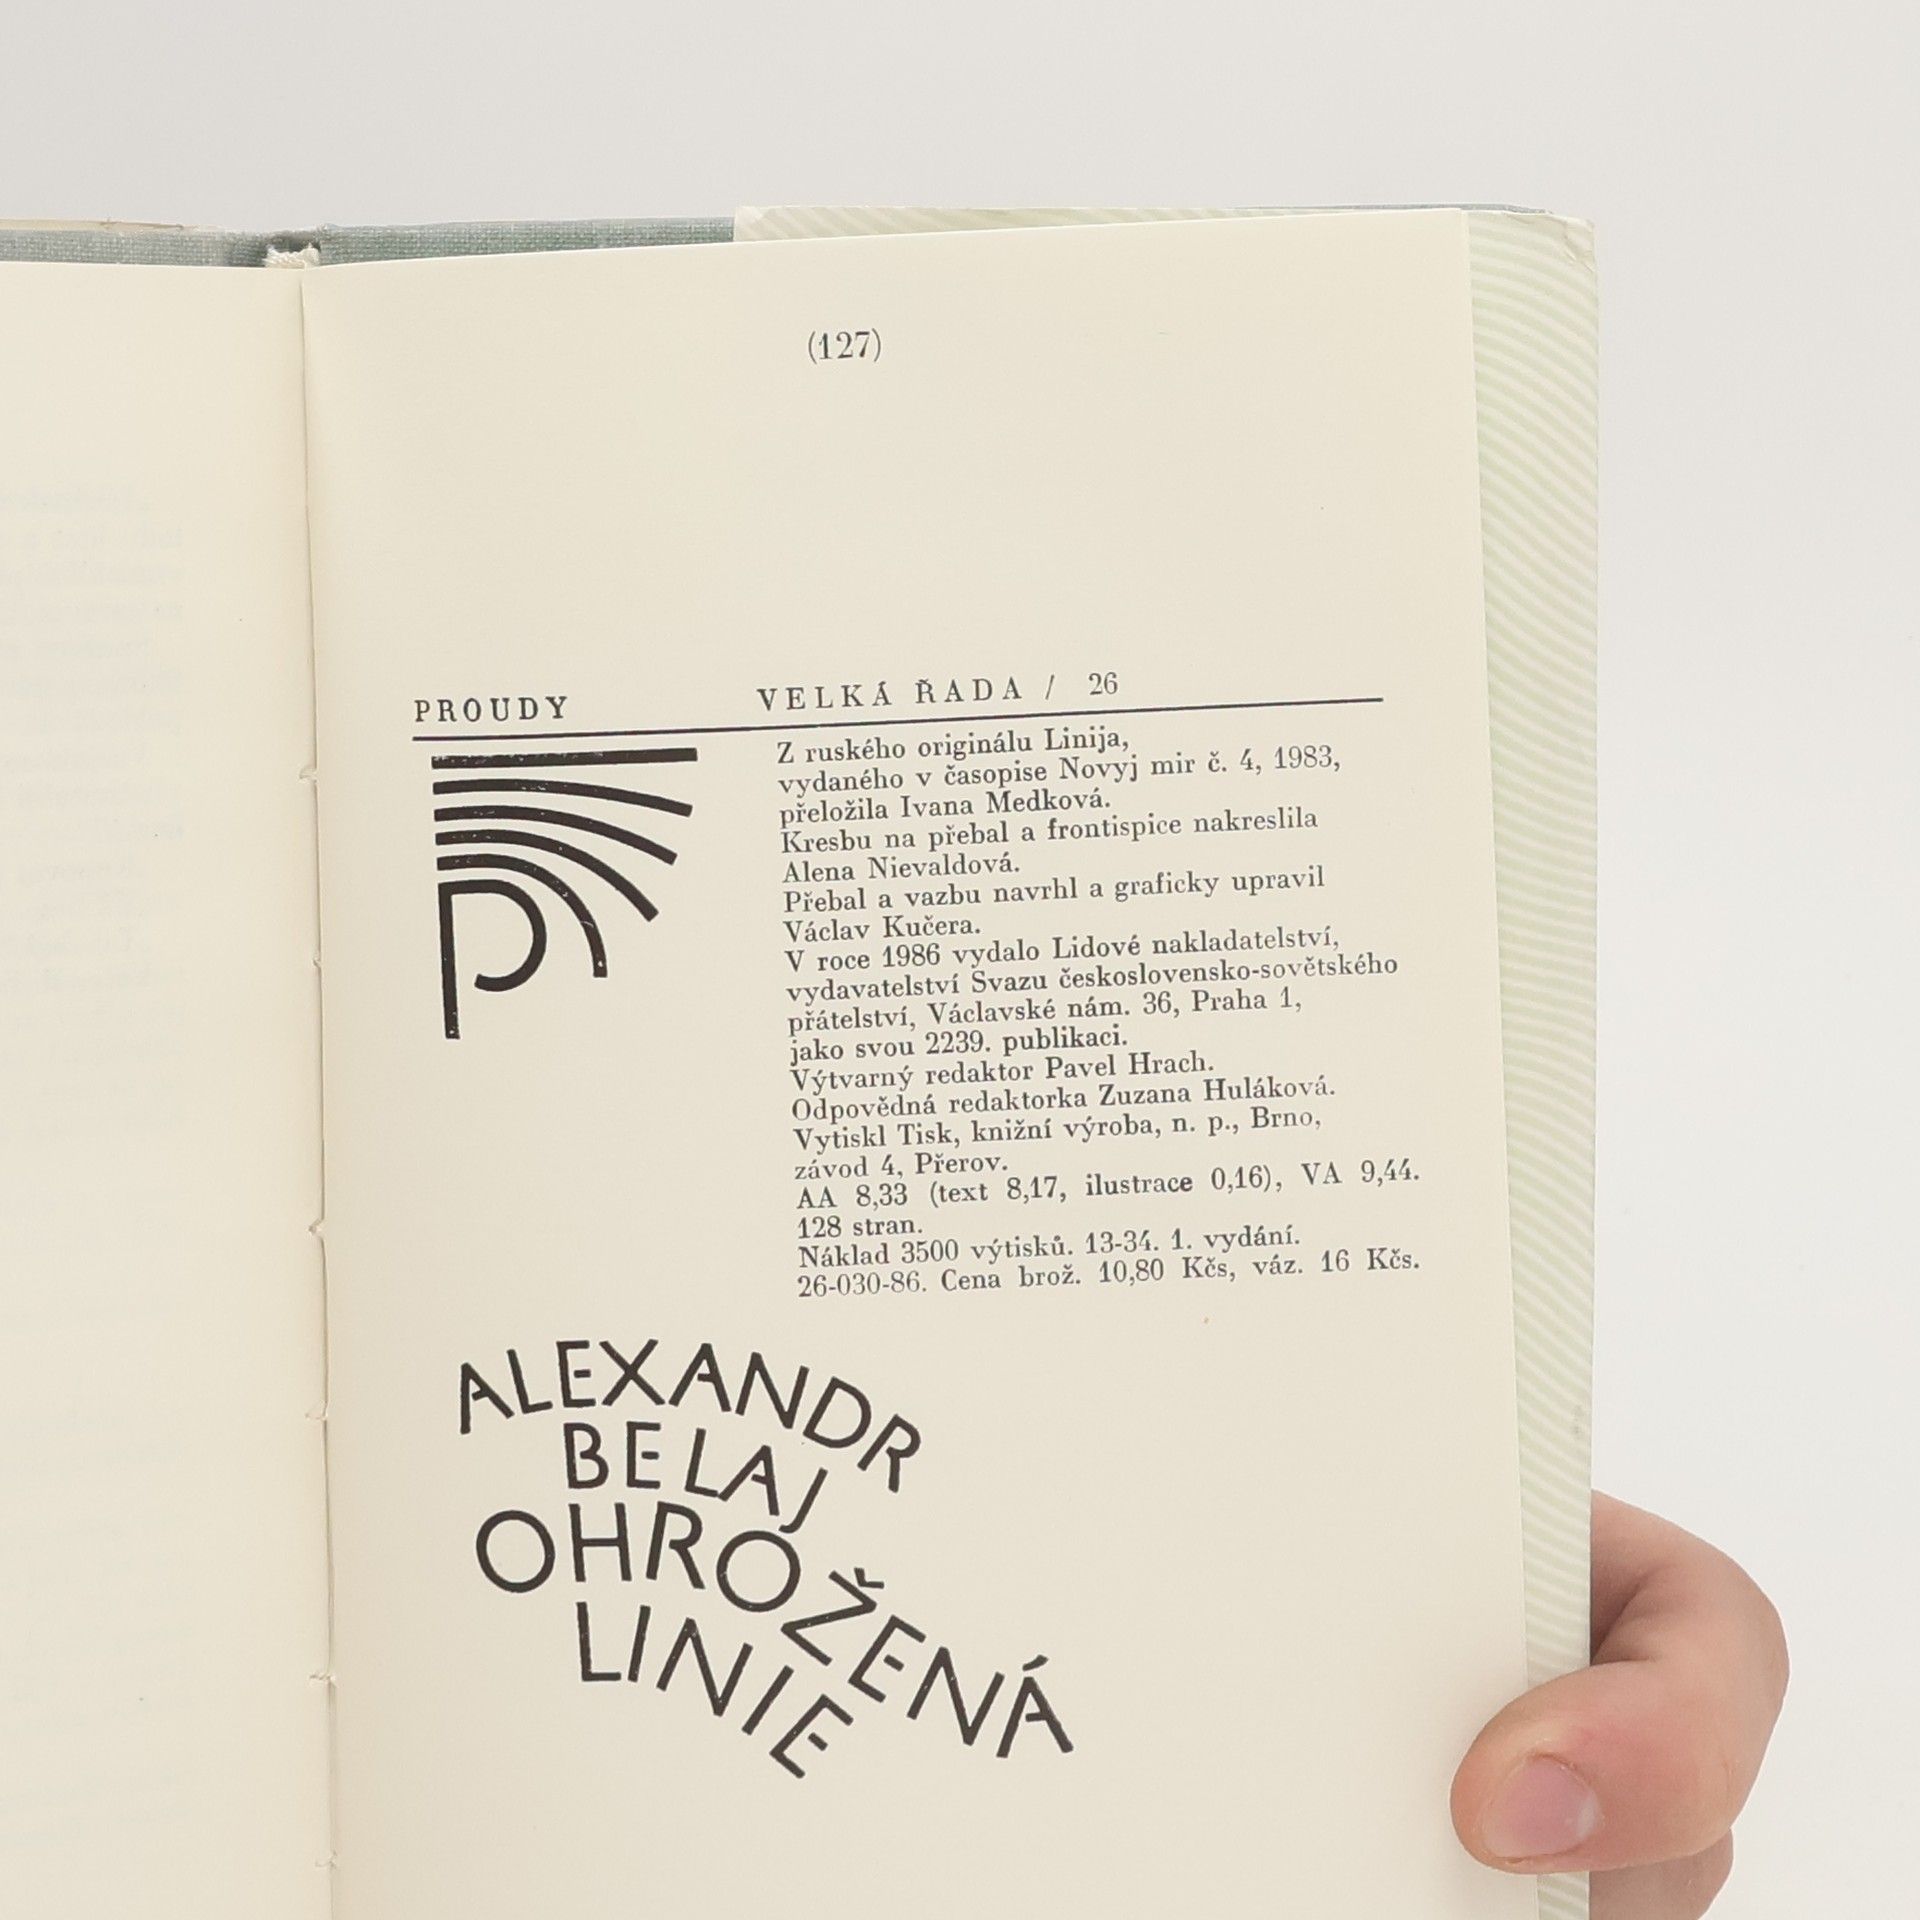 (127)
PROUDY VELKÁ ŘADA / 26
Z ruského originálu Linija,
vydaného v časopise Novyj mir č. 4, 1983,
přeložila Ivana Medková.
Kresbu na přebal a frontispice nakreslila
Alena Nievaldová.
Přebal a vazbu navrhl a graficky upravil
Václav Kučera.
V roce 1986 vydalo Lidové nakladatelství,
vydavatelství Svazu československo-sovětského
přátelství, Václavské nám. 36, Praha 1,
jako svou 2239. publikaci.
Výtvarný redaktor Pavel Hrach.
Odpovědná redaktorka Zuzana Huláková.
Vytiskl Tisk, knižní výroba, n. p., Brno,
závod 4, Přerov.
AA 8,33 (text 8,17, ilustrace 0,16), VA 9,44.
128 stran.
Náklad 3500 výtisků. 13-34. 1. vydání.
26-030-86. Cena brož. 10,80 Kčs, váz. 16 Kčs.
P
ALEXANDR
BELAJ
OHROŽENÁ
LINIE